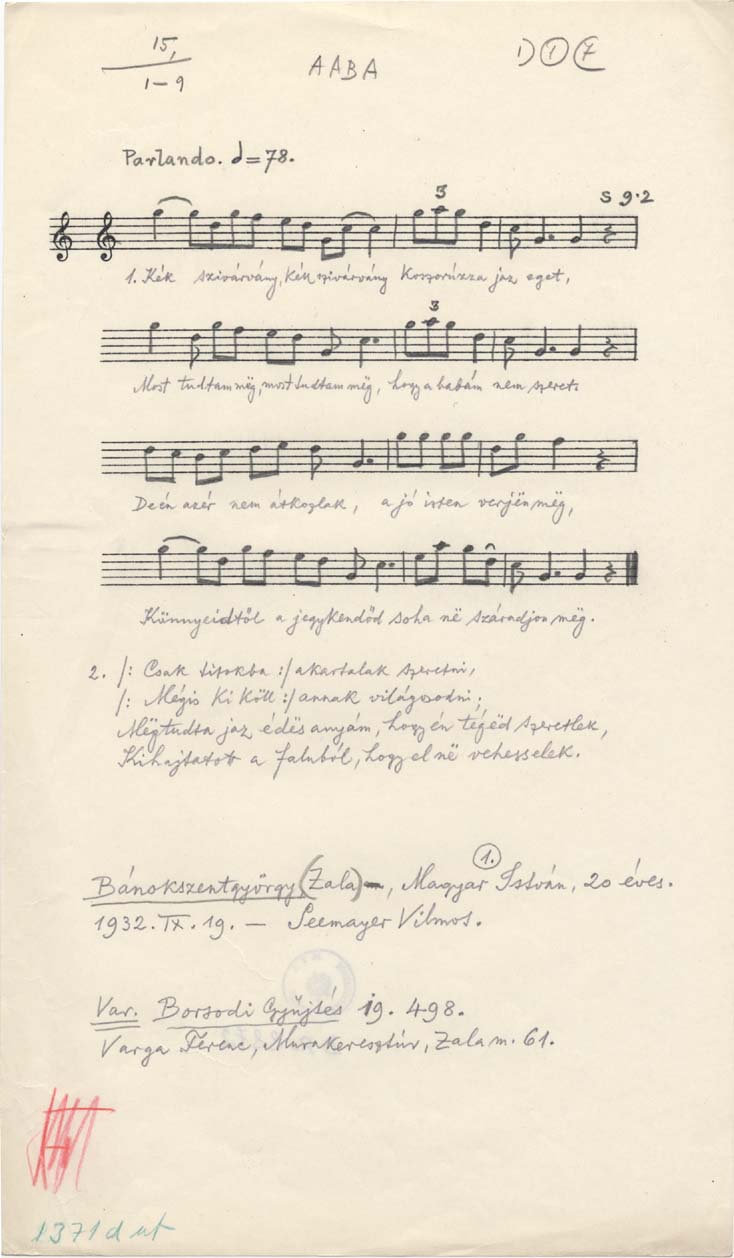 15,
1–9
AABA
1) 1 7
Parlando. ♩=78.
3
S 9·2
1. Kék szivárvány, kék szivárvány Koszorúzza jaz eget,
3
Most tudtam mëg, most tudtam mëg, hogy a babám nem szeret.
De én azér nem átkozlak, a jó isten verjën mëg,
Könnyeidtől a jegykendőd soha në száradjon mëg.
2. /: Csak titokba :/ akartalak szeretni,
/: Mégis ki költ :/ annak világosodni,
Mëgtudta jaz édës anyám, hogy én tégëd szeretlek,
Kihajtatott a faluból, hogy el në vehesselek.
1.
Bánokszentgyörgy (Zala) –, Magyar István, 20 éves.
1932. IX. 19. – Seemayer Vilmos.
Var. Borsodi Gyűjtés 19. 498.
Varga Ferenc, Murakeresztúr, Zala m. 61.
1371 d ut